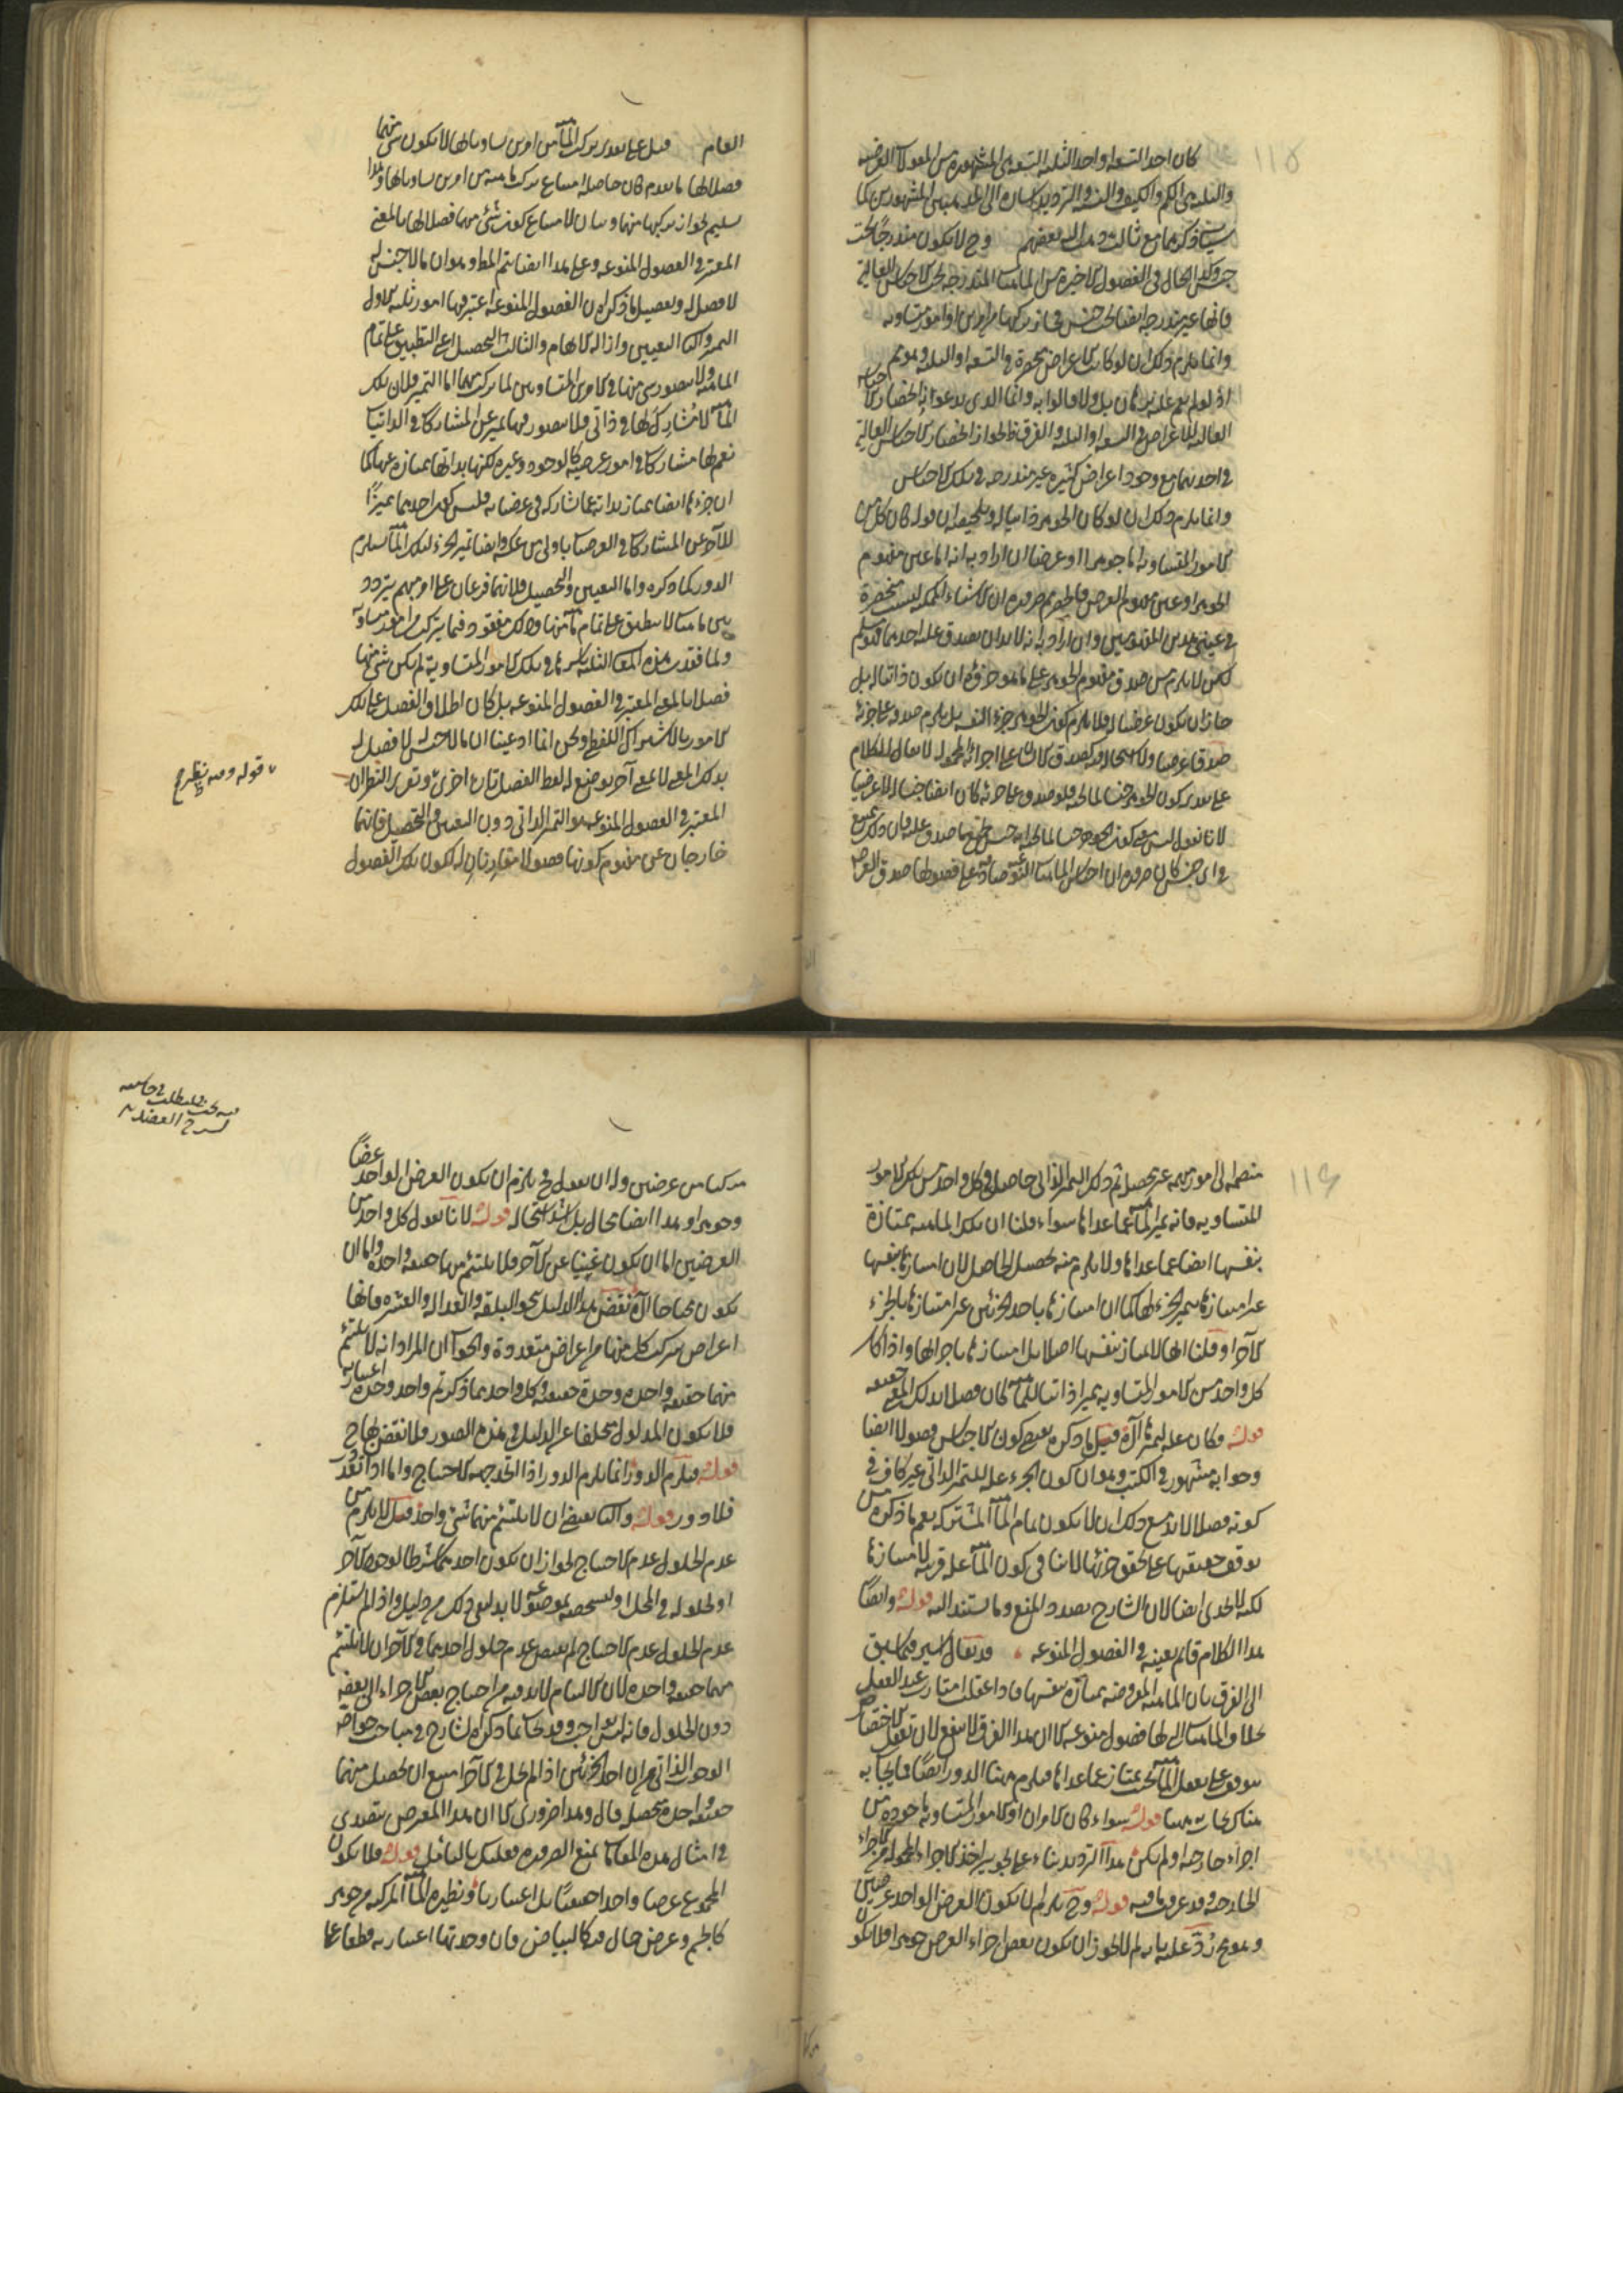 ١١٥
كان احد التسعة او احد الثلثة التسعة هى المشهورة من المقولات العرضية
والثلثة هى الكم والكيف والنسبة والترديد اشارة الى المذهبين المشهورين كما
سيأتى ذكرهما مع ثالث ذهب اليه بعضهم وح لا يكون مندرجا تحت
جنس وكذا الحال فى الفصول الاخيرة من الماهيات المندرجة تحت الاجناس العالية
فانها غير مندرجة ايضا تحت جنس فجاز تركبها من امرين او امور متساوية
وانما يلزم ذلك ان لو كانت الاعراض منحصرة فى التسعة او الثلثة وهو مم
اذ لم يقم عليه برهان بل ولا قالوا به وانما الذى يدعوانه انحصار الاجناس
العالية للاعراض فى التسعة او الثلثة والفرق ظ لجواز انحصار الاجناس العالية
فى احديهما مع وجود اعراض كثيرة غير مندرجة فى تلك الاجناس
وانما يلزم ذلك ان لو كان الجوهر ذاتيا له وتلخيصه ان قوله كان كل من
الامور المتساوية اما جوهرا او عرضا ان اراد به انه اما عين مفهوم
الجوهر او عين مفهوم العرض فالحصر مم ضرورة ان الاشياء الممكنة ليست منحصرة
فى عينى هذين المفهومين وان اراد به انه لا بد ان يصدق عليه احدهما فمسلم
لكن لا يلزم من صدق مفهوم الجوهر على ما هو جزؤه ان يكون ذاتيا له بل
جاز ان يكون عرضيا له فلا يلزم كون الجوهر جزء النفسه بل يلزم صدقه على جزئه
صدقا عرضيا ولا استحالة فيه كصدق الانسان على اجزائه المحمولة لا يقال الكلام
على تقدير كون الجوهر جنسا لما تحته فلو صدق على جزئه كان ايضا جنسا له لا عرضيا
لانا نقول ليس معنى كون الجوهر جنسا لما تحته انه جنس لجميع ما صدق عليه فان ذلك ممتنع
فى اى جنس كان ضرورة ان اجناس الماهيات النوعية صادقة على فصولها صدق العرض
العام قيل على تقدير تركب الماهية من امرين يساويانها لا يكون شئ منهما
فصلا لها ما تقدم كان حاصله امتناع تركب ماهية من امرين يساويانها وهذا
تسليم لجواز تركبها منهما وبيان لامتناع كون شئ منهما فصلا لها بالمعنى
المعتبر فى الفصول المنوعة وعلى هذا ايضا يتم المط وهو ان ما لا جنس له
لا فصل له وتفصيل ما ذكره ان الفصول المنوعة اعتبر فيها امور ثلثة الاول
التميز والثانى التعيين وازالة الابهام والثالث التحصيل اعنى التطبيق على تمام
الماهية ولا يتصور شئ منها فى الامرين المتساويين لما تركب منهما اما التميز فلان تلك
الماهية لا مشارك لها فى ذاتى فلا يتصور فيها تميز عن المشاركات فى الذاتيات
نعم لها مشاركات فى امور عرضية كالوجود وغيره لكنها بذاتها ممتازة عنها كما
ان جزءها ايضا يمتاز بذاته عما شاركه فى عرضياته فليس كون احدهما مميزا
للآخر عن المشاركات فى العرضيات باولى من عكسه وايضا تميز الجزء لتلك الماهية يستلزم
الدور كما ذكره واما التعيين والتحصيل فلانهما فرعان على امر مبهم يتردد
بين ماهيات لا ينطبق على تمام ماهية منها وذلك مفقود فيما يتركب من امور متساوية
ولما فقدت هذه المعانى الثلثة باسرها فى تلك الامور المتساوية لم يكن شئ منها
فصلا بالمعنى المعتبر فى الفصول المنوعة بل كان اطلاق الفصل على تلك
الامور بالاشتراك اللفظى ونحن انما ادعينا ان ما لا جنس له لا فصل له
بذلك المعنى لا بمعنى آخر يوضع له لفظ الفصل تارة اخرى وتقرير النظر ان
المعتبر فى الفصول المنوعة هو التميز الذاتى دون التعيين والتحصيل فانهما
خارجان عن مفهوم كونها فصولا مقارنان له لكون تلك الفصول
قوله وفيه نظر ح
١١٦
منضمة الى امور مبهمة غير محصلة ثم ذلك التميز الذاتى حاصل فى كل واحد من تلك الامور
المتساوية فانه يميز الماهية عما عداها سواء قلنا ان تلك الماهية ممتازة
بنفسها ايضا عما عداها ولا يلزم منه تحصيل الحاصل لان امتيازها بنفسها
غير امتيازها بتميز الجزء لها كما ان امتيازها باحد الجزئين غير امتيازها بالجزء
الآخر او قلنا انها لا تمتاز بنفسها اصلا بل امتيازها باجزائها واذا كان
كل واحد من الامور المتساوية مميزا ذاتيا للماهية كان فصلا بذلك المعنى حقيقة
قوله فكان علة لتميزها الآخر قيل ما ذكره يقتضى كون الاجناس فصولا ايضا
وجوابه مشهور فى الكتب وهو ان كون الجزء علة للتميز الذاتى غير كاف فى
كونه فصلا لا بد مع ذلك ان لا يكون تمام الماهية المشتركة نعم ما ذكره من
توقف حقيقتها على تحقق جزئها لا ينافى كون الماهية علة قريبة لامتيازها
لكنه لا يجدى ايضا لان الشارح بصدد المنع وما يستند اليه قوله وايضا
هذا الكلام قائم بعينه فى الفصول المنوعة قد يقال اشير فيما سبق
الى الفرق بان الماهية المفروضة ممتازة بنفسها فاذا عقلت امتازت عند العقل
بخلاف الماهيات التى لها فصول منوعة الا ان هذا الفرق لا ينفع لان تعقل الاختصاص
يتوقف على تعقل الماهية بحيث تمتاز عما عداها فيلزم هنا الدور ايضا فما يجاب به
هناك يجاب به هنا قوله سواء كان الامران او الامور المتساوية مأخوذة من
اجزاء خارجية او لم يكن هذا الترديد بناء على تجويز اخذ الاجزاء المحمولة من الاجزاء
الخارجية وقد عرفت ما فيه قوله وح يلزم ان يكون العرض الواحد عرضين
وهو مم رد عليه بانه لم لا يجوز ان يكون بعض اجزاء العرض جوهرا فلا يكون
مركبا من عرضين وله ان يقول ح يلزم ان يكون العرض الواحد عرضا
وجوهرا وهذا ايضا محال بل اشد استحالة قوله لانا نقول كل واحد من
العرضين اما ان يكون غنيا عن الآخر فلا يلتئم منهما حقيقة واحدة واما ان
يكون محتاجا الخ نقض هذا الدليل بنحو البلقة والعدالة والعشرة فانها
اعراض يتركب كل منها من اعراض متعددة والجواب ان المراد انه لا يلتئم
منهما حقيقة واحدة وحدة حقيقية وكل واحد مما ذكرتم واحد وحدة اعتبارية
فلا يكون المدلول متخلفا عن الدليل فى هذه الصور فلا نقض بها ح
قوله فيلزم الدور انما يلزم الدور اذا اتحد جهة الاحتياج واما اذا تعدد
فلا دور قوله والثانى يقتضى ان لا يلتئم منهما شئ واحد قيل لا يلزم من
عدم الحلول عدم الاحتياج لجواز ان يكون احدهما شرطا لوجود الآخر
او لحلوله فى المحل او لتشخصه بموضوعه لا بد لنفى ذلك من دليل واذا لم يستلزم
عدم الحلول عدم الاحتياج لم يقتض عدم حلول احدهما فى الآخر ان لا يلتئم
منهما حقيقة واحدة لان الالتيام لا بد فيه من احتياج بعض الاجزاء الى بعض
دون الحلول فانه ليس بواجب وقد يجاب بما ذكره الشارح فى مباحث خواص
الوجوب الذاتى من ان احد الجزئين اذا لم يحل فى الآخر امتنع ان يحصل منهما
حقيقة واحدة محصلة قال وهذا ضرورى الا ان هذا المعترض يتصدى
فى امثال هذه المقامات لمنع الضرورة فعليك بالتأمل قوله فلا يكون
المجموع عرضا واحدا حقيقيا بل اعتباريا ونظيره الماهية المركبة من جوهر
كالجسم وعرض حال فيه كالبياض فان وحدتها اعتبارية قطعا